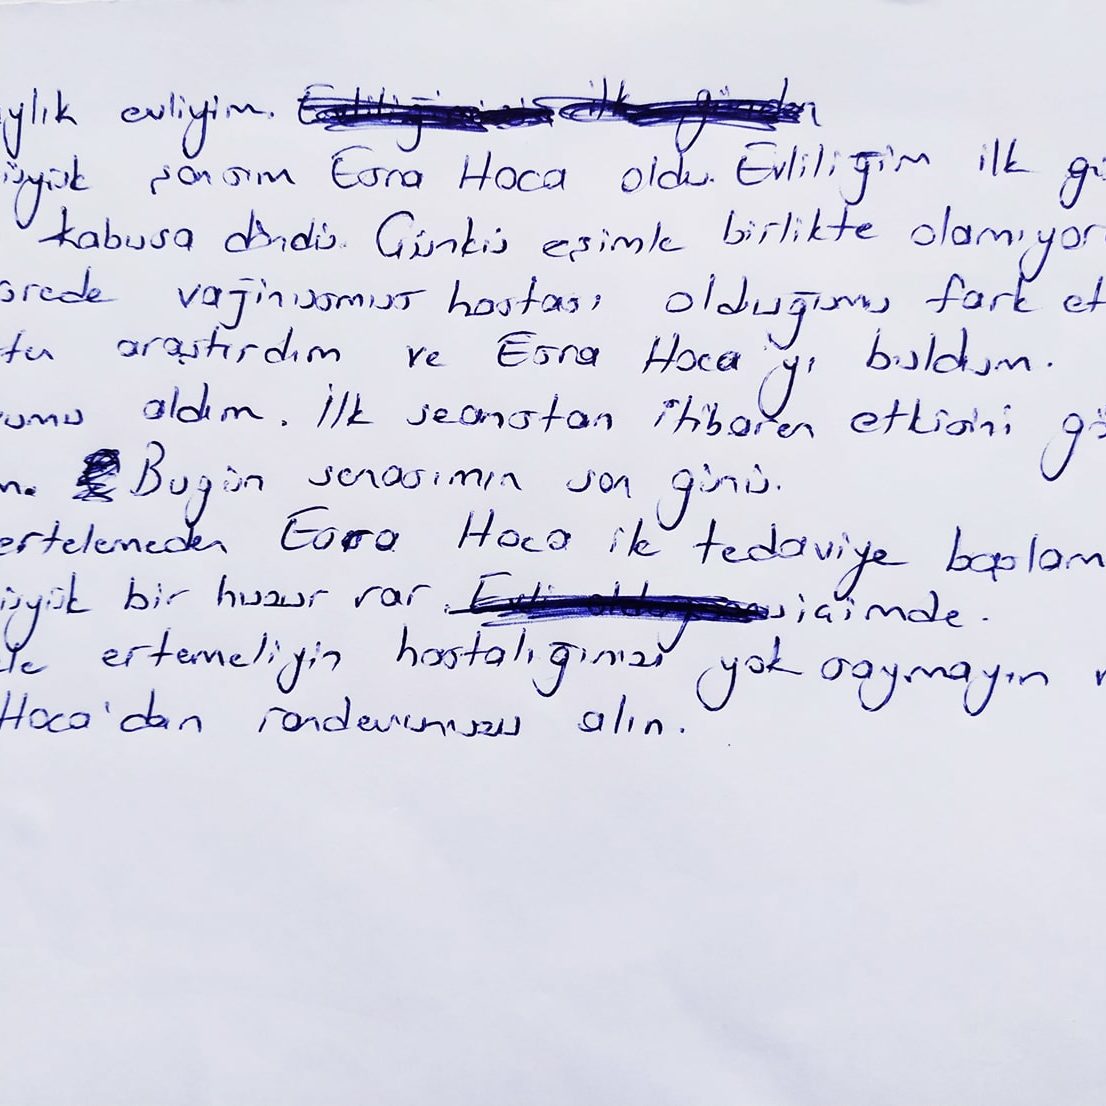 ylık evliyim.
üyük şansım Esra Hoca oldu. Evliliğim ilk gü
kabusa döndü. Çünkü eşimle birlikte olamıyor
srede vajinusmus hastası olduğumu fark et
ten araştırdım ve Esra Hoca'yı buldum.
umu aldım. İlk seanstan itibaren etkisini gö
m. Bugün senasımın son günü.
ertelemeden Esra Hoca ile tedaviye başlam
üyük bir huzur var içimde.
le ertemeliyin hastalığınızı yok saymayın v
Hoca'dan randevunuzu alın.